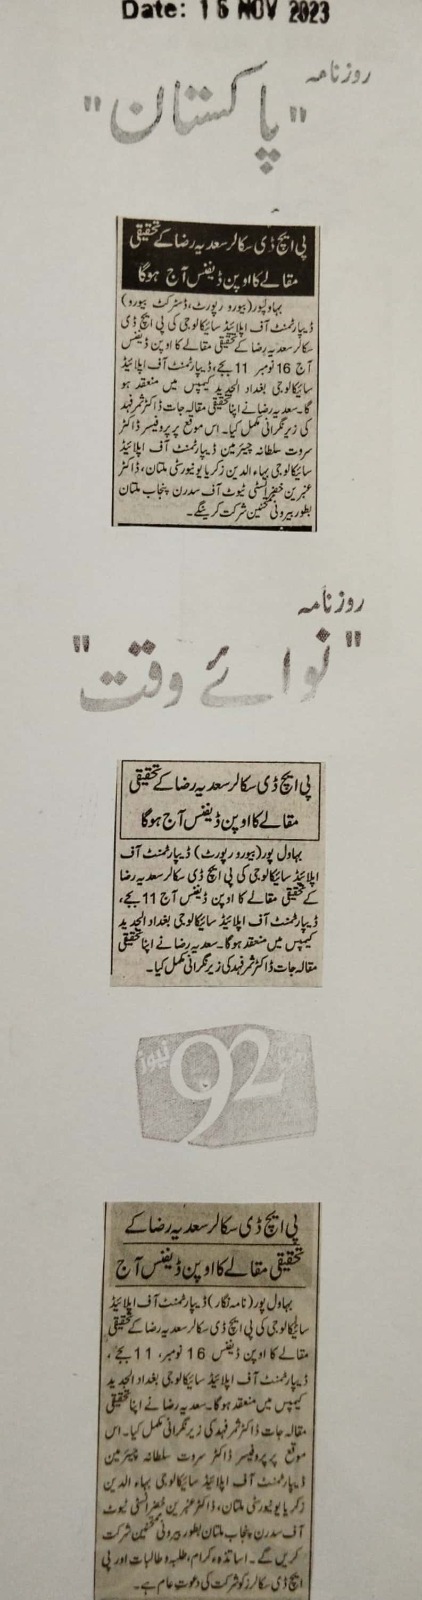 Date: 16 NOV 2023
روزنامہ
"پاکستان"
پی ایچ ڈی سکالر سعدیہ رضا کے تحقیقی
مقالے کا اوپن ڈیفنس آج ہوگا
بہاولپور (بیورو رپورٹ، ڈسٹرکٹ بیورو)
ڈیپارٹمنٹ آف اپلائیڈ سائیکالوجی کی پی ایچ ڈی
سکالر سعدیہ رضا کے تحقیقی مقالے کا اوپن ڈیفنس
آج 16 نومبر 11 بجے، ڈیپارٹمنٹ آف اپلائیڈ
سائیکالوجی بغداد الجدید کیمپس میں منعقد ہو
گا۔ سعدیہ رضا نے اپنا تحقیقی مقالہ جات ڈاکٹر ثمر فہد
کی زیر نگرانی مکمل کیا۔ اس موقع پر پروفیسر ڈاکٹر
سروت سلطانہ چیئرمین ڈیپارٹمنٹ آف اپلائیڈ
سائیکالوجی بہاء الدین زکریا یونیورسٹی ملتان، ڈاکٹر
عنبرین خضر انسٹی ٹیوٹ آف سدرن پنجاب ملتان
بطور بیرونی ممتحین شرکت کرینگے۔
روزنامہ
"نوائے وقت"
پی ایچ ڈی سکالر سعدیہ رضا کے تحقیقی
مقالے کا اوپن ڈیفنس آج ہوگا
بہاول پور (بیورو رپورٹ) ڈیپارٹمنٹ آف
اپلائیڈ سائیکالوجی کی پی ایچ ڈی سکالر سعدیہ رضا
کے تحقیقی مقالے کا اوپن ڈیفنس آج 11 بجے،
ڈیپارٹمنٹ آف اپلائیڈ سائیکالوجی بغداد الجدید
کیمپس میں منعقد ہوگا۔ سعدیہ رضا نے اپنا تحقیقی
مقالہ جات ڈاکٹر ثمر فہد کی زیر نگرانی مکمل کیا۔
92 نیوز
پی ایچ ڈی سکالر سعدیہ رضا کے
تحقیقی مقالے کا اوپن ڈیفنس آج
بہاول پور (نامہ نگار) ڈیپارٹمنٹ آف اپلائیڈ
سائیکالوجی کی پی ایچ ڈی سکالر سعدیہ رضا کے تحقیقی
مقالے کا اوپن ڈیفنس 16 نومبر، 11 بجے،
ڈیپارٹمنٹ آف اپلائیڈ سائیکالوجی بغداد الجدید
کیمپس میں منعقد ہوگا۔ سعدیہ رضا نے اپنا تحقیقی
مقالہ جات ڈاکٹر ثمر فہد کی زیر نگرانی مکمل کیا۔ اس
موقع پر پروفیسر ڈاکٹر سروت سلطانہ چیئرمین
ڈیپارٹمنٹ آف اپلائیڈ سائیکالوجی بہاء الدین
زکریا یونیورسٹی ملتان، ڈاکٹر عنبرین خضر انسٹی ٹیوٹ
آف سدرن پنجاب ملتان بطور بیرونی ممتحین شرکت
کریں گے۔ اساتذہ کرام، طلبہ و طالبات اور پی
ایچ ڈی سکالرز کو شرکت کی دعوت عام ہے۔